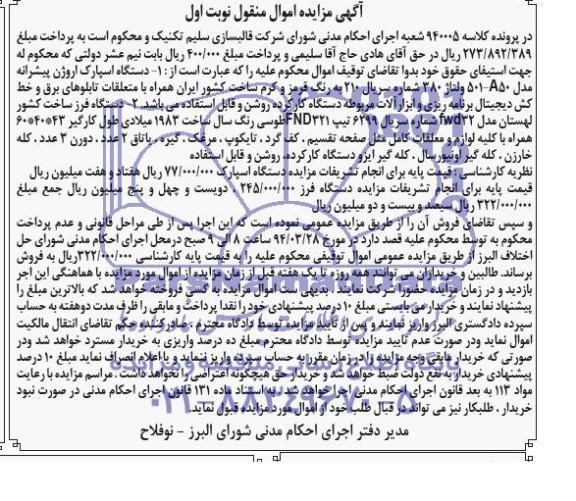 آگهی مزایده اموال منقول نوبت اول
در پرونده کلاسه ۹۴۰۰۰۵ شعبه اجرای احکام مدنی شورای شرکت قالبسازی سلیم تکنیک و محکوم است به پرداخت مبلغ
۲۷۳/۸۹۲/۳۸۹ ریال در حق آقای هادی حاج آقا سلیمی و پرداخت مبلغ ۴۰۰/۰۰۰ ریال بابت نیم عشر دولتی که محکوم له
جهت استیفای حقوق خود بدوا تقاضای توقیف اموال محکوم علیه را که عبارت است از : ۱- دستگاه اسپارک اروژن پیشرانه
مدل A۵۰-۵۰۱ ولتاژ ۳۸۰ شماره سریال ۲۱۰ به رنگ قرمز و کرم ساخت کشور ایران همراه با متعلقات تابلوهای برق و خط
کش دیجیتال برنامه ریزی و ابزار آلات مربوطه دستگاه کارکرده روشن و قابل استفاده می باشد. ۲- دستگاه فرز ساخت کشور
لهستان مدل fwd۳۲ شماره سریال ۶۲۹۹ تیپ FND۳۲۱ طوسی رنگ سال ساخت ۱۹۸۳ میلادی طول کارگیر ۴۳*۴۰*۶۰
همراه با کلیه لوازم و معلقات کامل مثل صفحه تقسیم . کف گرد . تایکوپ . مرغک . گیره . یاتاق ۲ عدد . دورن ۳ عدد . کله
خارزن . کله گیر اونیورسال . کله گیر ایزو دستگاه کارکرده. روشن و قابل استفاده
نظریه کارشناسی : قیمت پایه برای انجام تشریفات مزایده دستگاه اسپارک ۷۷/۰۰۰/۰۰۰ ریال هفتاد و هفت میلیون ریال
قیمت پایه برای انجام تشریفات مزایده دستگاه فرز ۲۴۵/۰۰۰/۰۰۰ . دویست و چهل و پنج میلیون ریال جمع مبلغ
۳۲۲/۰۰۰/۰۰۰ ریال سیصد و بیست و دو میلیون ریال
و سپس تقاضای فروش آن را از طریق مزایده عمومی نموده است که این اجرا پس از طی مراحل قانونی و عدم پرداخت
محکوم به توسط محکوم علیه قصد دارد در مورخ ۹۴/۰۳/۲۸ ساعت ۸ الی ۹ صبح درمحل اجرای احکام مدنی شورای حل
اختلاف البرز از طریق مزایده عمومی اموال توقیفی محکوم علیه را به قیمت پایه کارشناسی ۳۲۲/۰۰۰/۰۰۰ ریال به فروش
برساند. طالبین و خریداران می توانند همه روزه تا یک هفته قبل از زمان مزایده از اموال مورد مزایده با هماهنگی این اجرا
بازدید و در زمان مزایده حضورا شرکت نمایند . بدیهی ست اموال مزایده به کسی فروخته خواهد شد که بالاترین مبلغ را
پیشنهاد نمایند و خریدار می بایستی مبلغ ۱۰ درصد پیشنهادی خود را نقدا پرداخت و مابقی را ظرف مدت دوهفته به حساب
سپرده دادگستری البرز واریز نمایند و پس از تایید مزایده توسط دادگاه محترم . صادرکننده حکم تقاضای انتقال مالکیت
اموال نماید ودر صورت عدم تایید مزایده توسط دادگاه محترم مبلغ ده درصد واریزی به خریدار مسترد خواهد شد ودر
صورتی که خریدار مابقی وجه مزایده را در زمان مقرر به حساب سپرده واریز ننماید و یا اعلام انصراف نماید مبلغ ۱۰ درصد
پیشنهادی خریدار به نفع دولت ضبط خواهد شد و خریدار حق هیچگونه اعتراضی را نخواهد داشت . مراسم مزایده با رعایت
مواد ۱۱۳ به بعد قانون اجرای احکام مدنی اجرا خواهد شد . به استناد ماده ۱۳۱ قانون اجرای احکام مدنی در صورت نبود
خریدار . طلبکار نیز می تواند در قبال طلب خود از اموال مورد مزایده قبول نماید.
مدیر دفتر اجرای احکام مدنی شورای البرز - نوفلاح